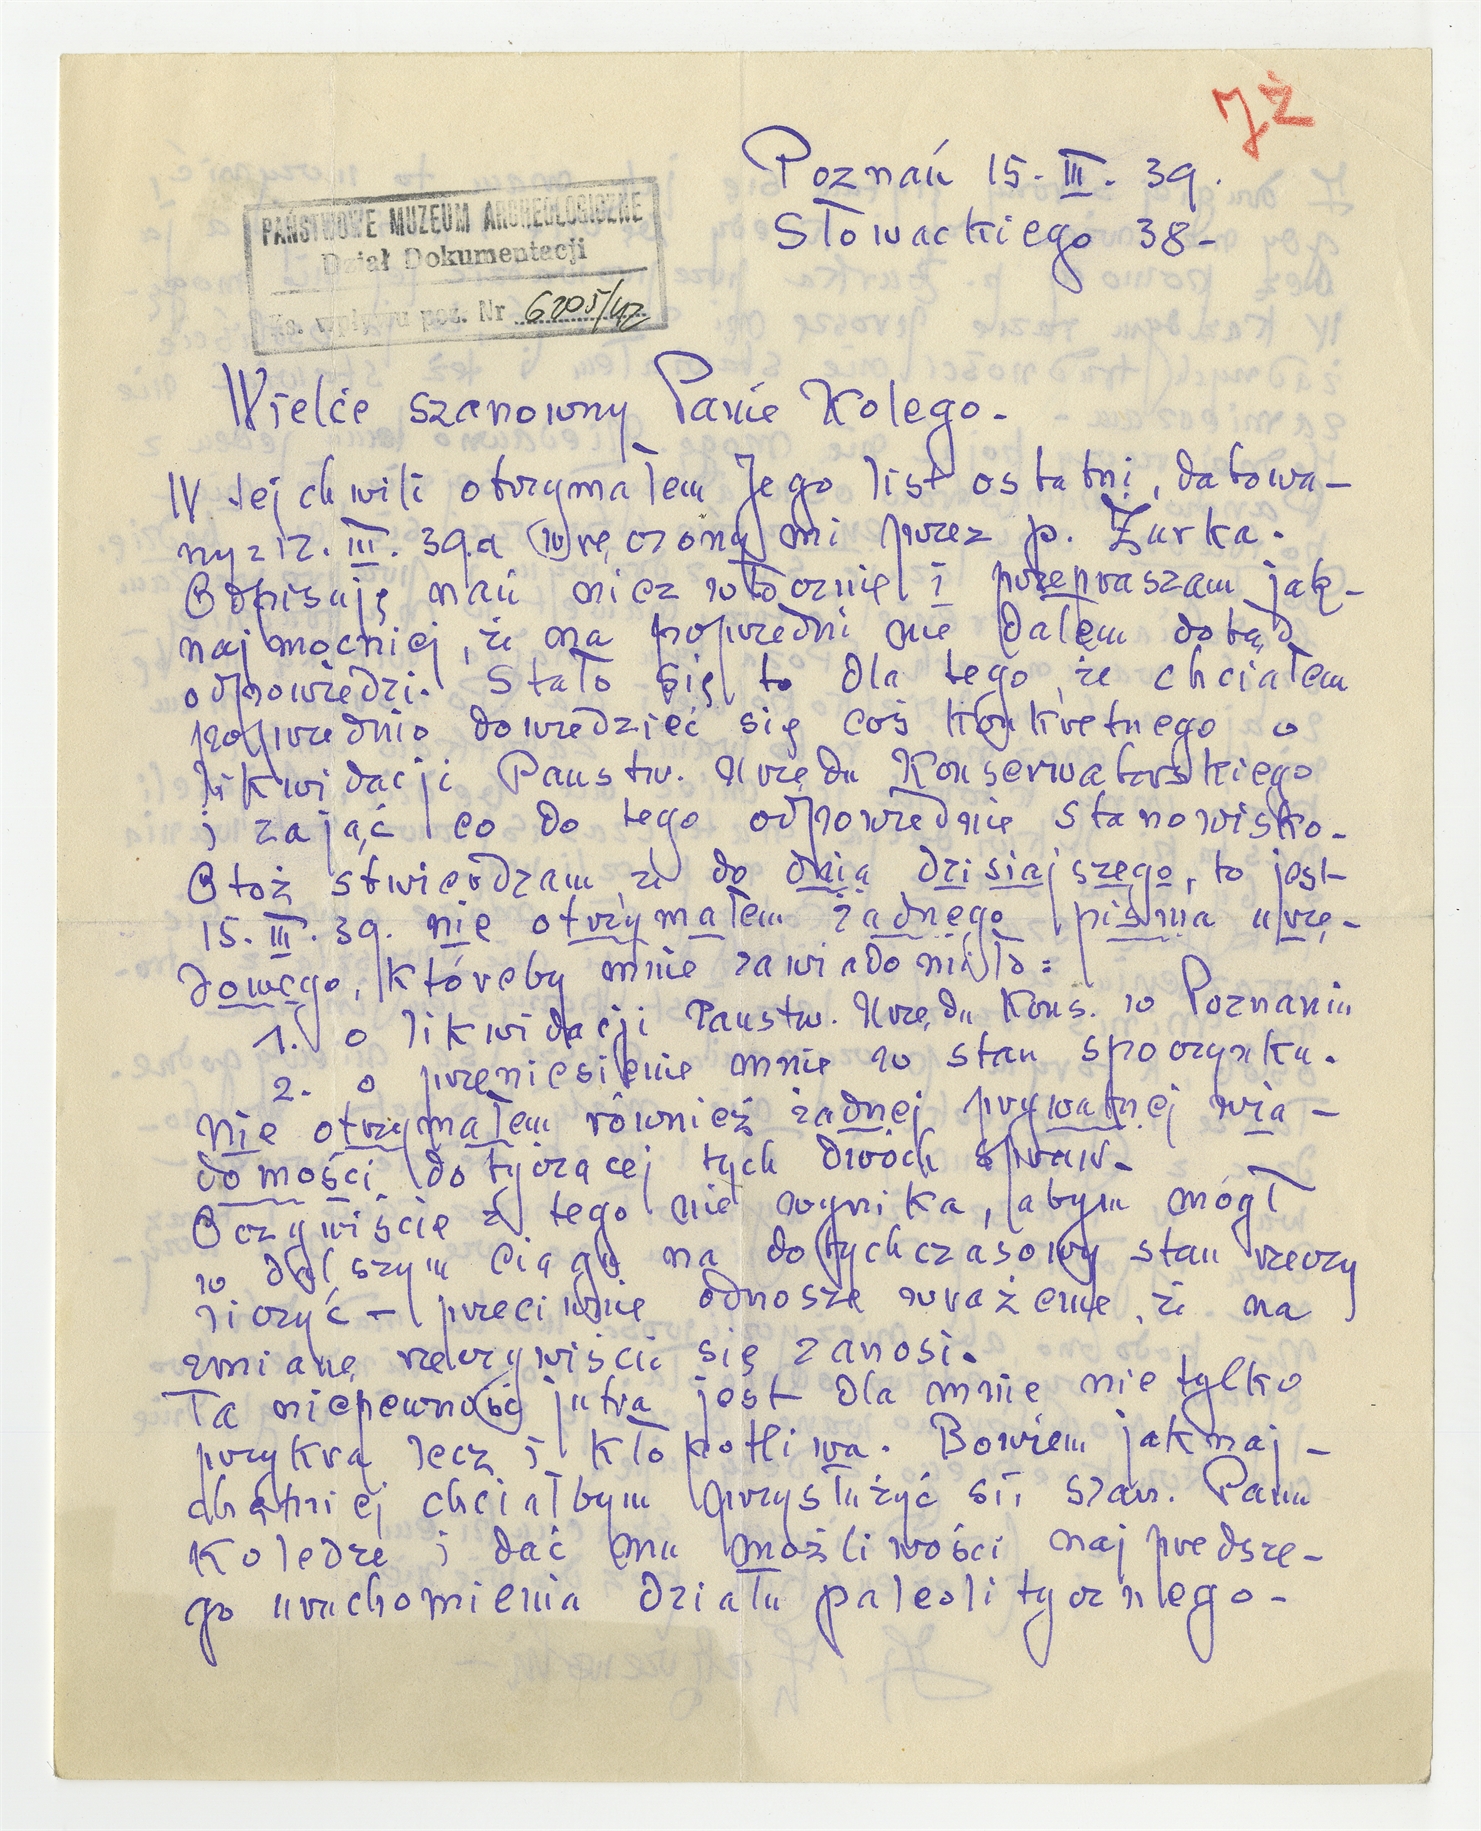 JŻ
Poznań 15. III. 39.
Słowackiego 38 -
PAŃSTWOWE MUZEUM ARCHEOLOGICZNE
Dział Dokumentacji
Ks. wpływu poz. Nr 6205/42
Wielce szanowny Panie Kolego -
W tej chwili otrzymałem Jego list ostatni, datowa-
ny z 12. III. 39. a wręczony mi przez p. Żurka.
Odpisuję nań niezwłocznie i przepraszam jak-
najmocniej, że na poprzedni nie dałem dotąd
odpowiedzi. Stało się to dla tego, że chciałem
poprzednio dowiedzieć się coś konkretnego o
likwidacji Państw. Urzędu Konserwatorskiego
i zająć co do tego odpowiednie stanowisko -
Otoż stwierdzam, że do dnia dzisiajszego, to jest
15. III. 39. nie otrzymałem żadnego pisma urzę-
dowego, któreby mnie zawiadomiło:
1. o likwidacji Państw. Urzędu Kons. w Poznaniu
2. o przeniesienie mnie w stan spoczynku.
Nie otrzymałem również żadnej prywatnej wia-
domości dotyczącej tych dwóch spraw -
Oczywiście z tego nie wynika, abym mógł
w dalszym ciągu na dotychczasowy stan rzeczy
liczyć - przeciwnie odnoszę wrażenie, że na
zmianę rzeczywiście się zanosi.
Ta niepewność jutra jest dla mnie nie tylko
przykra lecz i kłopotliwa. Bowiem jaknaj-
chętniej chciałbym przysłużyć się Szan. Panu
Koledze i dać mu możliwości najprędsze-
go uruchomienia działu paleolitycznego -